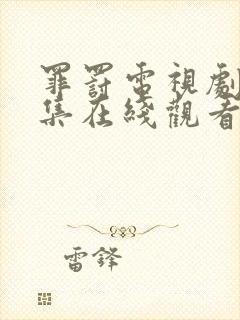 罪罰電視劇
集在綫觀看
雷鋒